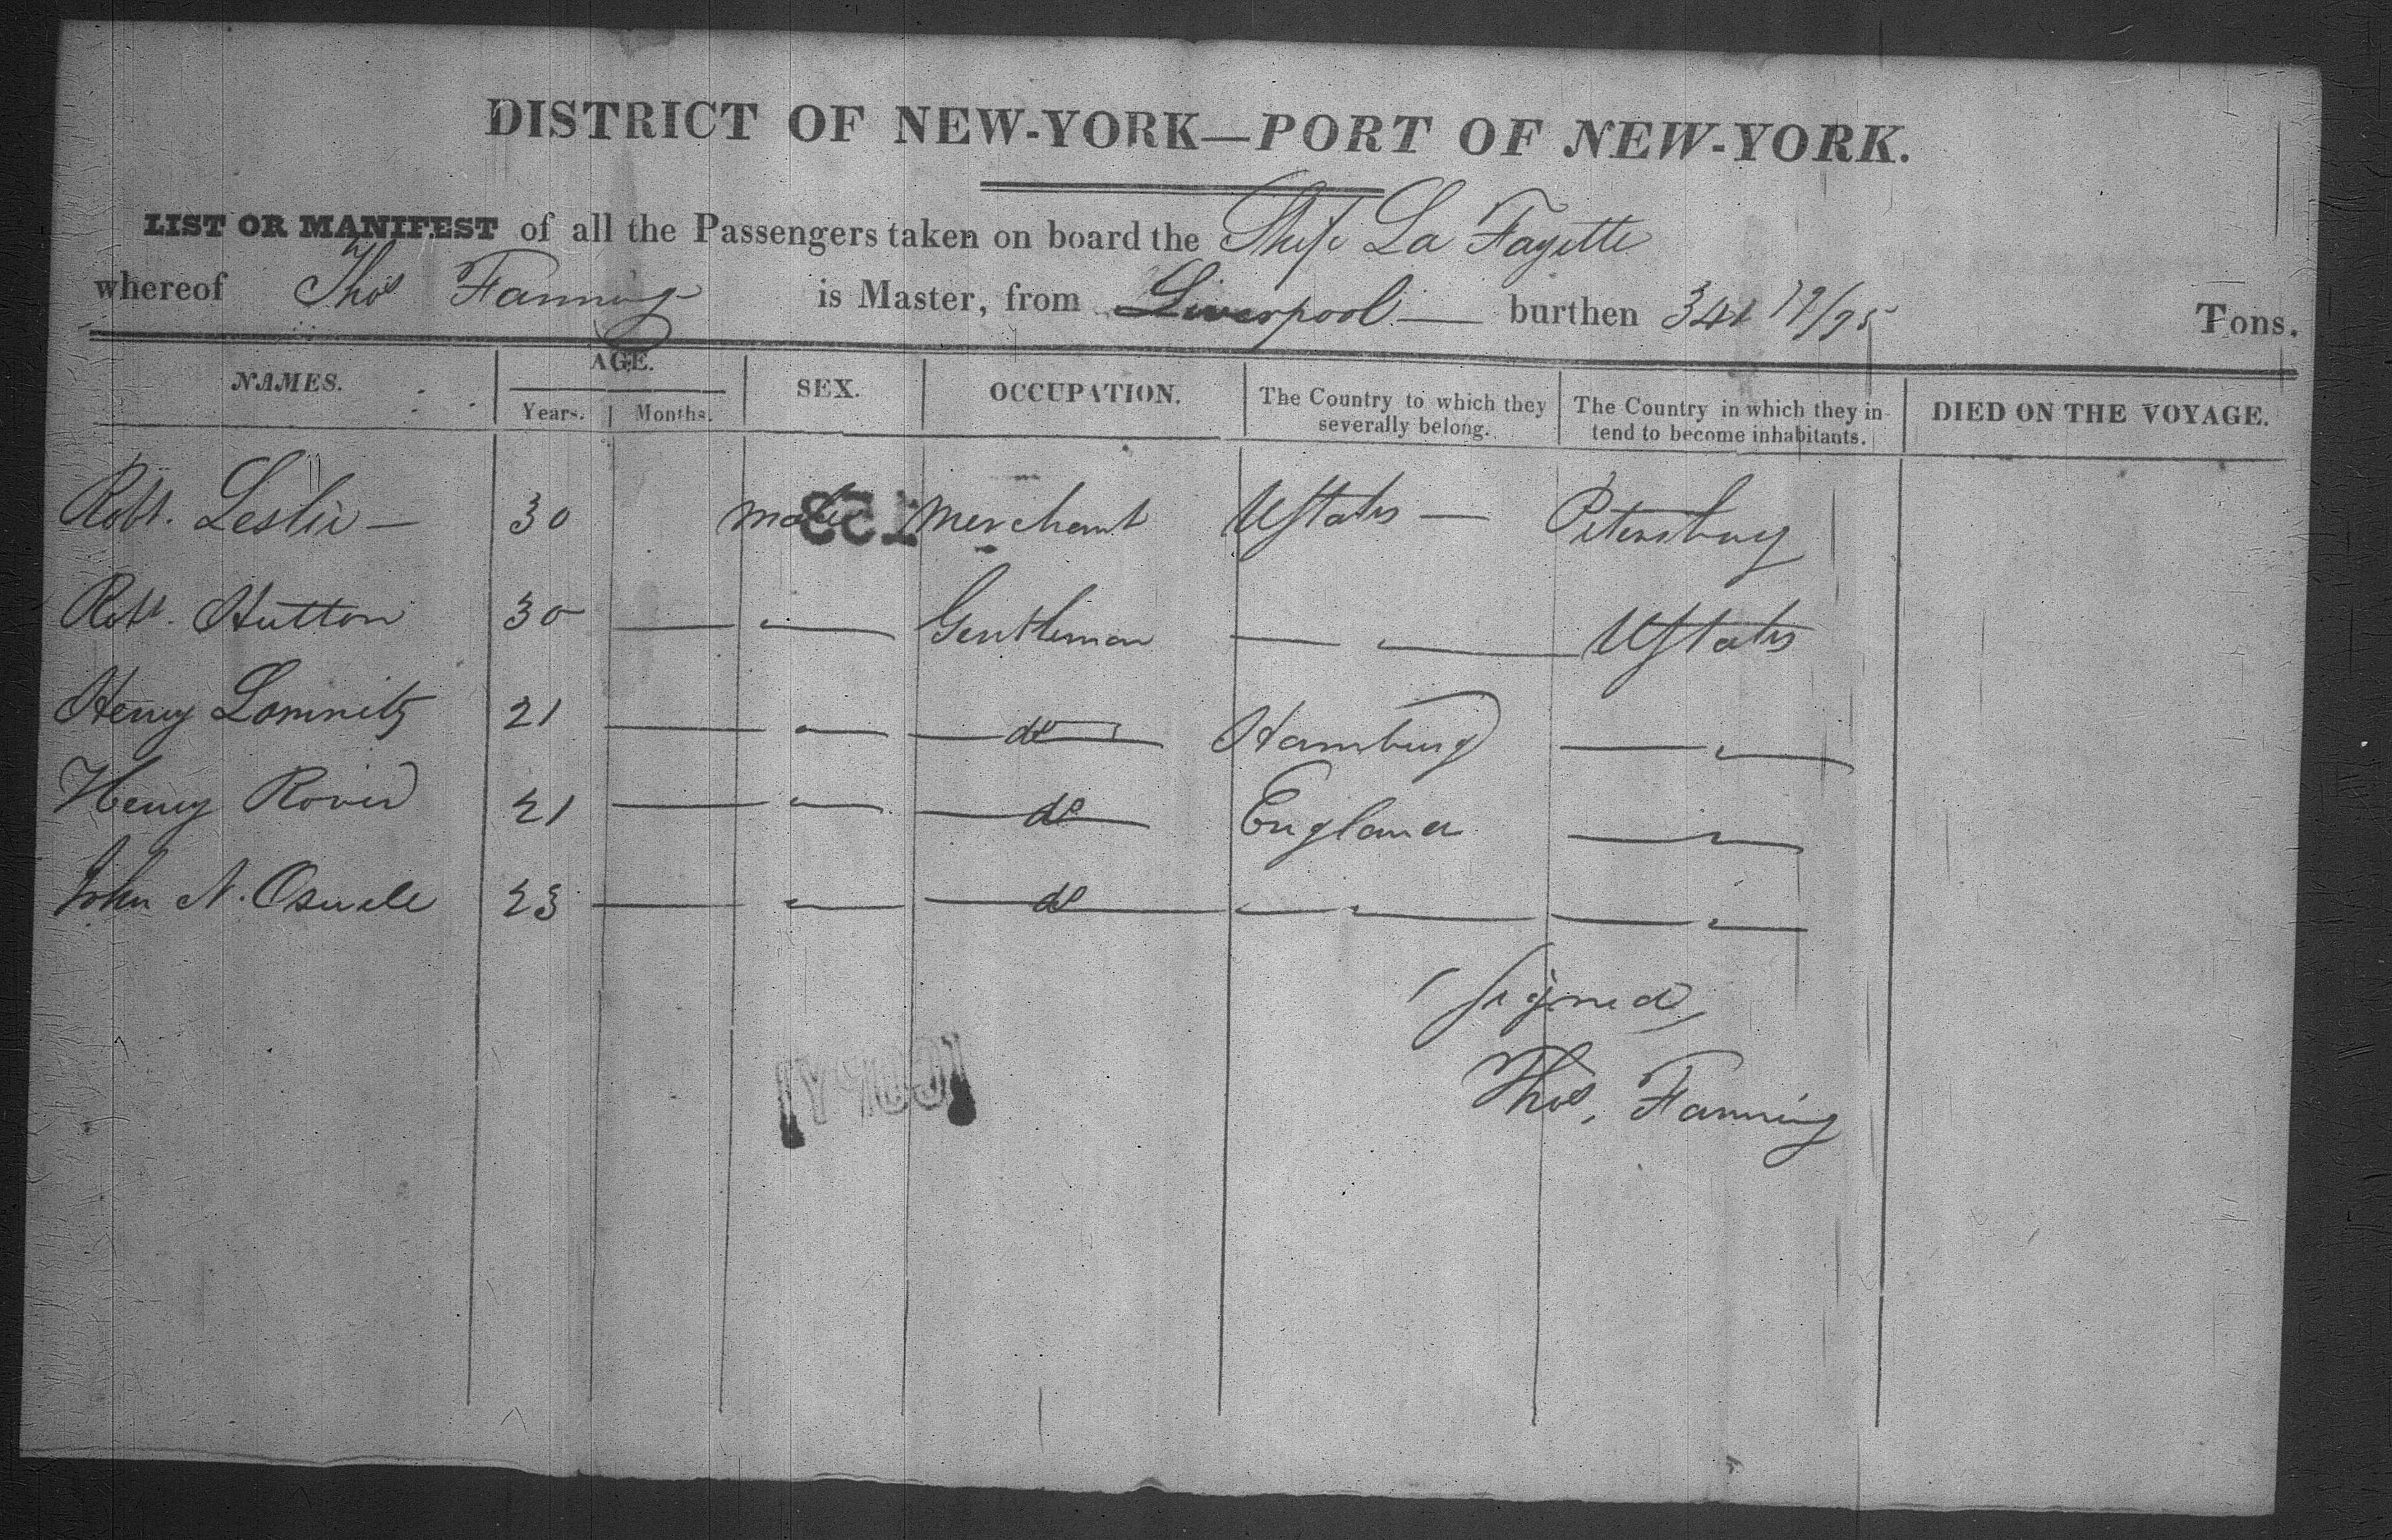 DISTRICT OF NEW-YORK—PORT OF NEW-YORK.
LIST OR MANIFEST of all the Passengers taken on board the Ship La Fayette
whereof Thos Fanning is Master, from Liverpool — burthen 341 /95 Tons.
NAMES. AGE. Years. Months. SEX. OCCUPATION. The Country to which they severally belong. The Country in which they intend to become inhabitants. DIED ON THE VOYAGE.
Robt. Leslie — 30 male Merchant UStates — Petersburg
Robt. Hutton 30 — — Gentleman — — UStates
Henry Lomnitz 21 — — do Hamburg — —
Henry 21 — — do England — —
John N. 23 — — do — — — —
Signed,
COPY
Thos. Fanning